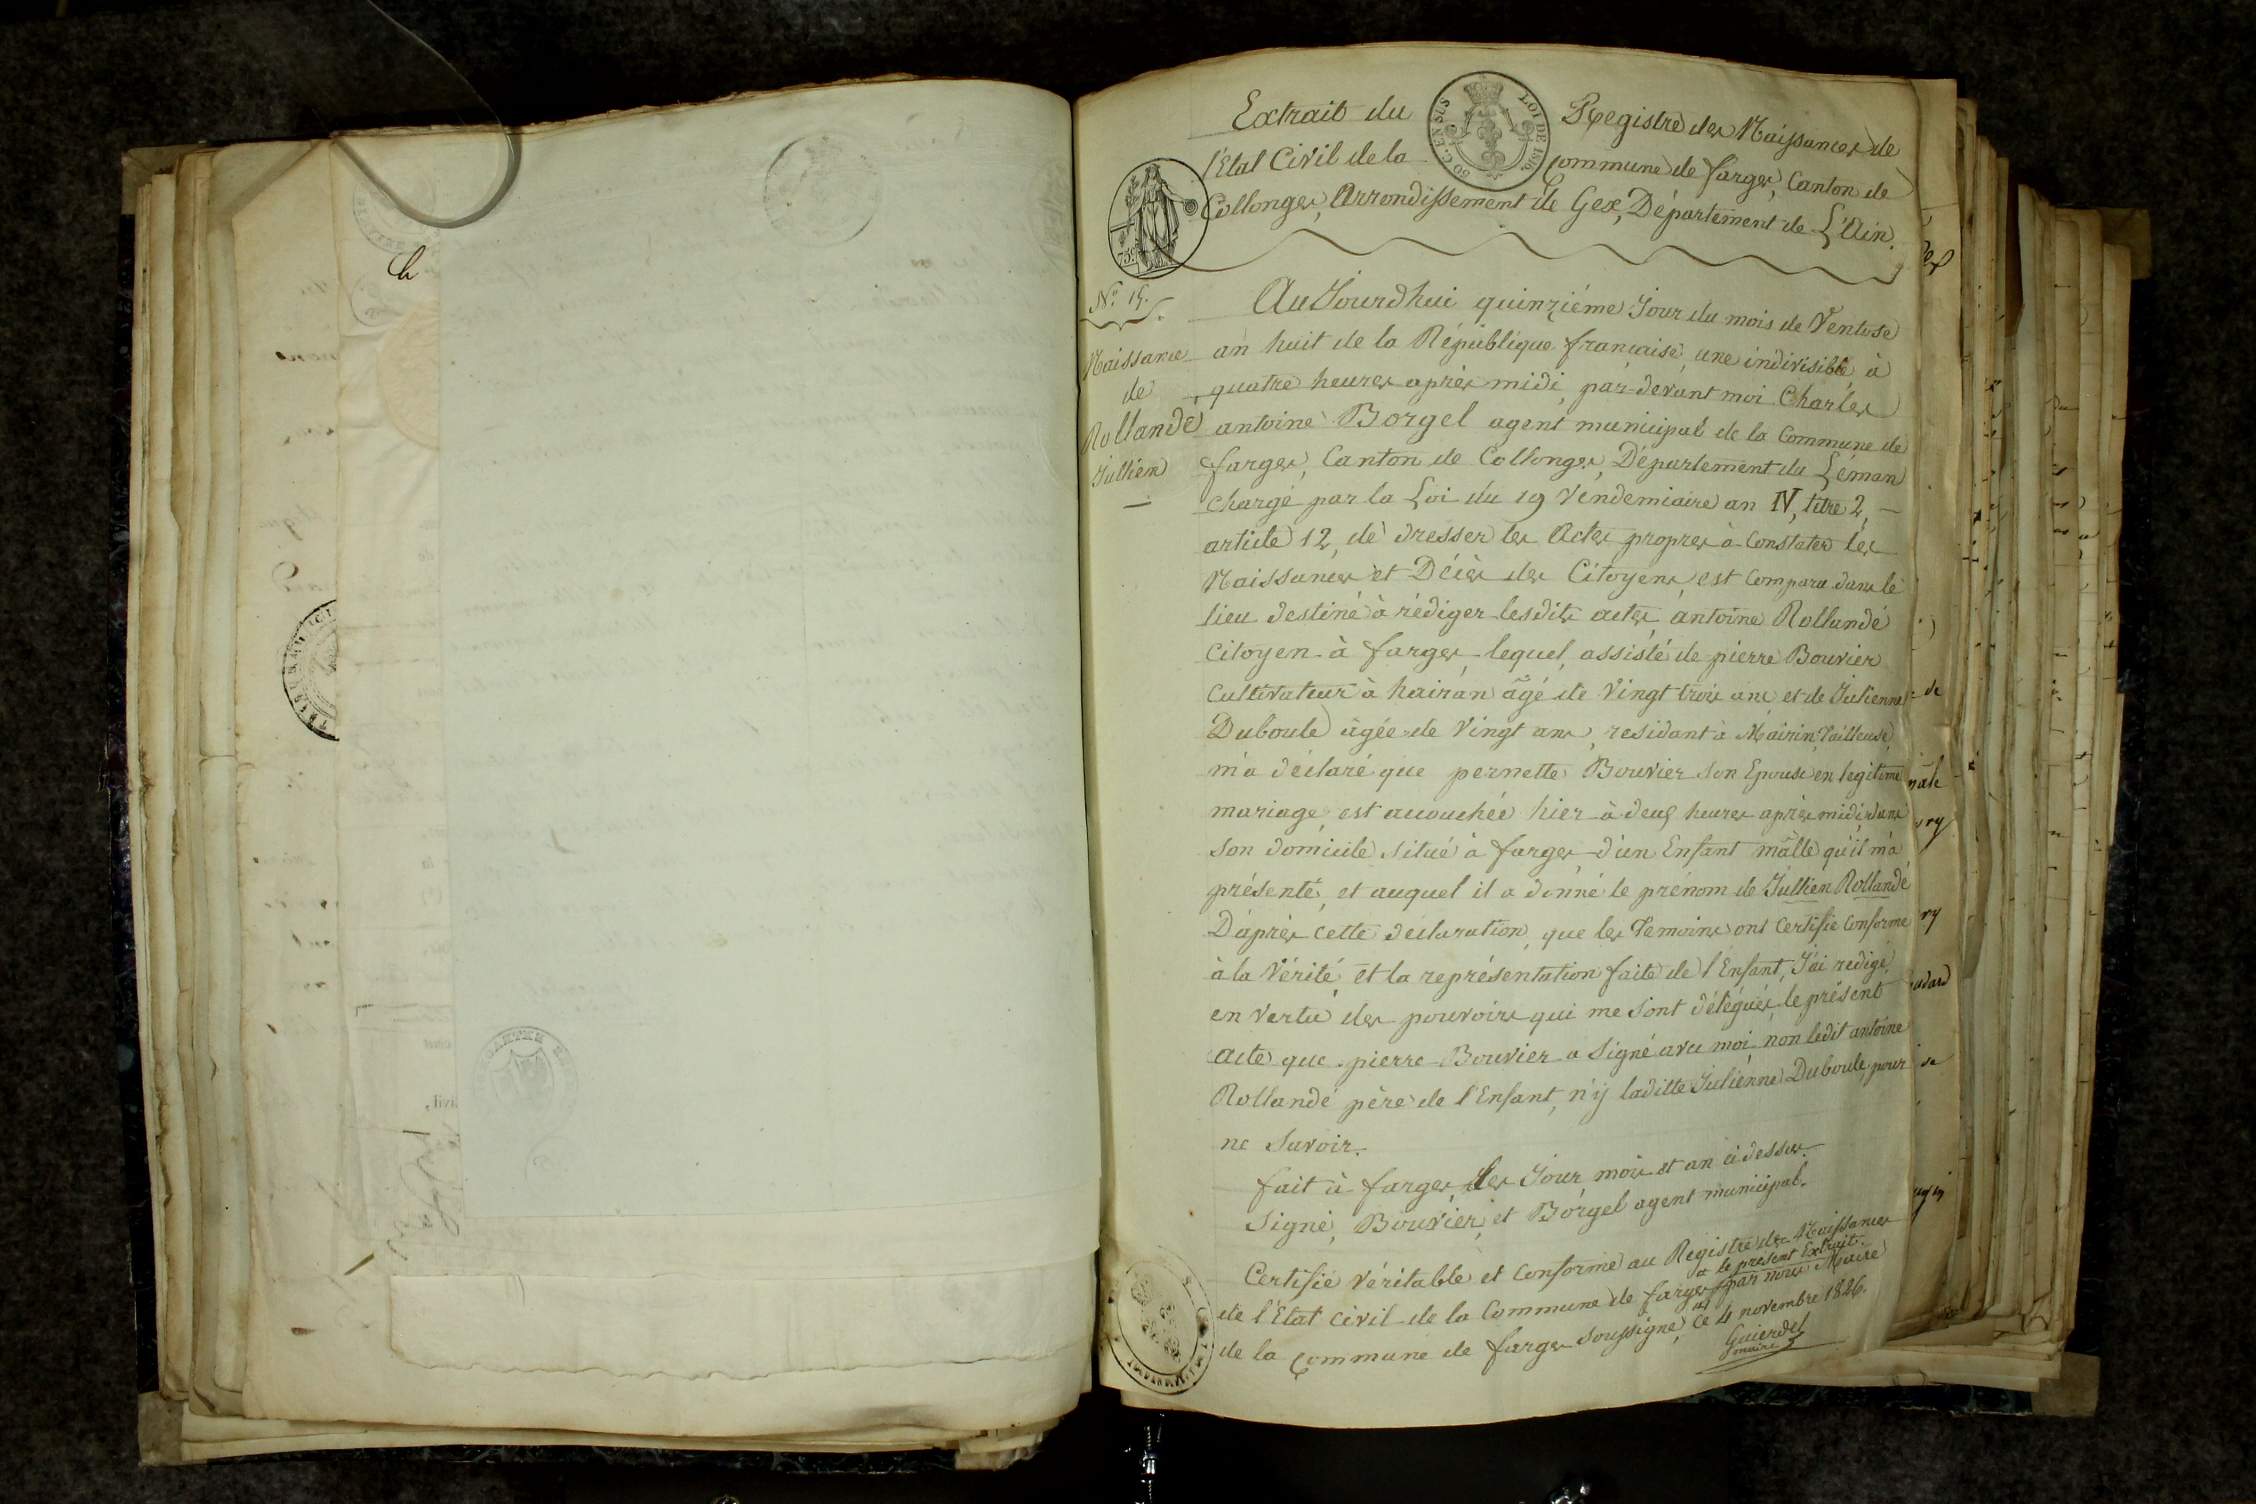 Extrait du Registre des Naissances de
l'Etat Civil de la Commune de farges, Canton de
Collonges, Arrondissement de Gex, Département de L'Ain.
50 C. EN SUS
LOI DE 1816
75 c
N.° 15.
Naissance
de
Rollandé
Jullien
AuJourdhui quinziéme Jour du mois de Ventose
an huit de la République française, une indivisible, à
quatre heures après midi, par-devant moi Charles
antoine Borgel agent municipal de la Commune de
farges, Canton de Collonges, Département du Léman
chargé par la Loi du 19 Vendemiaire an IV, titre 2,
article 12, de dresser les Actes propres à Constater les
Naissances et Décès des Citoyens, est Comparu dans le
lieu destiné à rédiger lesdits actes, antoine Rollandé
Citoyen à farges, lequel, assisté de pierre Bouvier
Cultivateur à hairan âgé de Vingt trois ans, et de Julienne
Duboule âgée de Vingt ans, residant à Mairin, tailleuse,
m'a déclaré que pernette Bouvier son Epouse en legitime
mariage, est accouchée hier à deux heures après midi, dans
son domicile situé à farges d'un Enfant mâlle qu'il m'a
présenté, et auquel il a donné le prénom de Jullien Rollandé
D'après cette déclaration, que les Temoins ont Certifié Conforme
à la Vérité, et la représentation faite de l'Enfant, J'ai redigé,
en vertu des pouvoirs qui me sont délégués, le présent
acte que pierre Bouvier a Signé avec moi, non ledit antoine
Rollandé père de l'Enfant, n'ÿ laditte Julienne Duboule, pour
ne Savoir.
fait à farges, les Jour, mois et an ci dessus.
Signé, Bouvier, et Borgel agent municipal.
Certifié Véritable et Conforme au Registre des Naissances
et le présent Extrait
de l'Etat civil de la Commune de farges, par nous Maire
de la Commune de farges soussigné, ce 4 novembre 1826.
Guierdel
maire